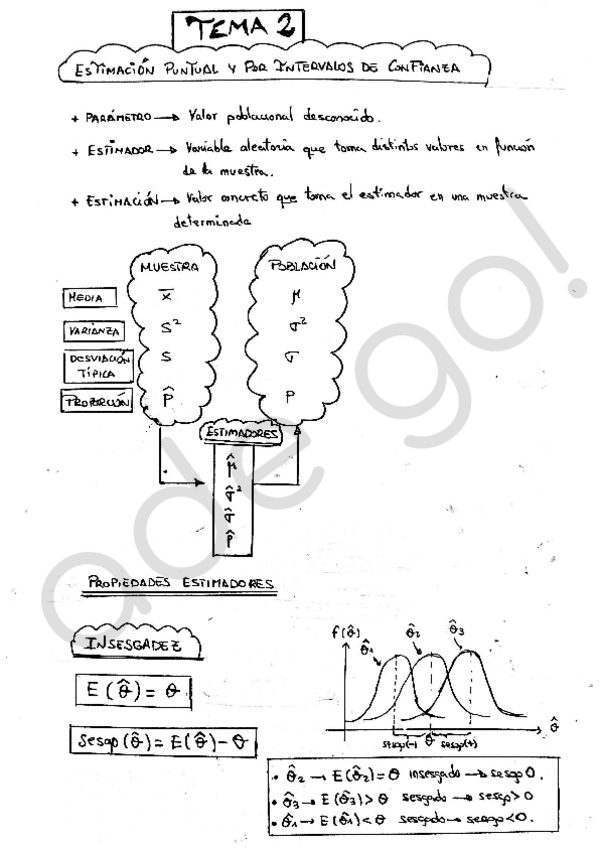 TEMA 2
ESTIMACIÓN PUNTUAL Y POR INTERVALOS DE CONFIANZA
+ PARÁMETRO → Valor poblacional desconocido.
+ ESTIMADOR → Variable aleatoria que toma distintos valores en función
de la muestra.
+ ESTIMACIÓN → Valor concreto que toma el estimador en una muestra
determinada
MUESTRA POBLACIÓN
MEDIA x̄ μ
VARIANZA S² σ²
DESVIACIÓN
TÍPICA S σ
PROPORCIÓN P̂ P
ESTIMADORES
μ̂
σ̂²
σ̂
P̂
PROPIEDADES ESTIMADORES
INSESGADEZ
E(θ̂) = θ
sesgo(θ̂) = E(θ̂) - θ
f(θ̂) θ̂₁ θ̂₂ θ̂₃
θ̂
sesgo(-) θ sesgo(+)
• θ̂₂ → E(θ̂₂) = θ insesgado → sesgo 0.
• θ̂₃ → E(θ̂₃) > θ sesgado → sesgo > 0
• θ̂₁ → E(θ̂₁) < θ sesgado → sesgo < 0.
ade go!